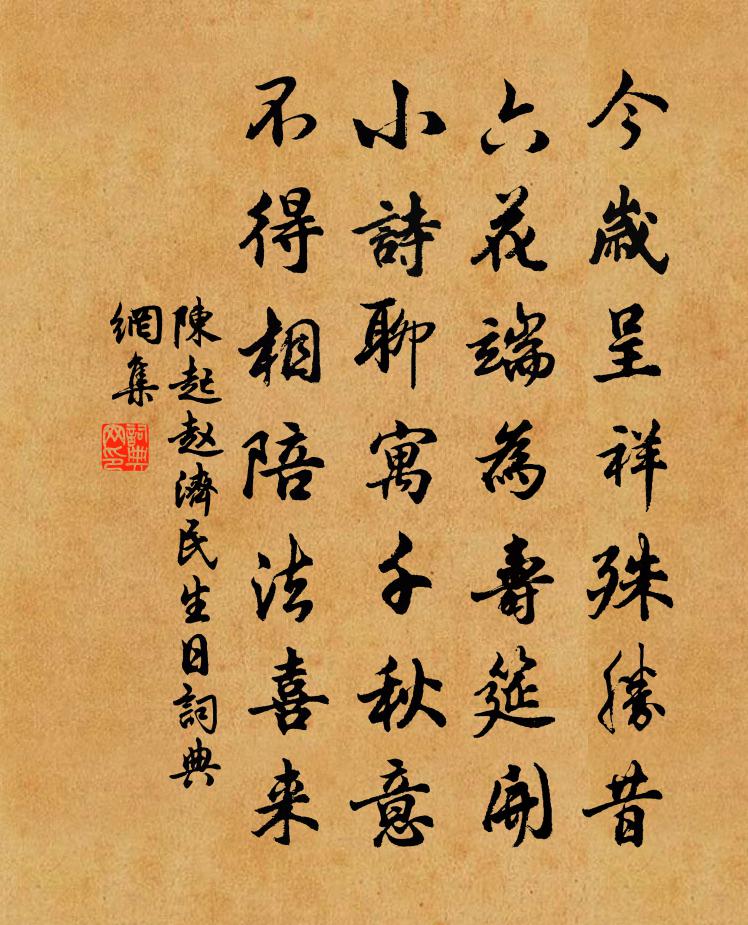 今歲呈祥殊勝昔
六花端為壽筵開
小詩聊寓千秋意
不得相陪法喜来
陳起赵濟民生日詞典
網集
詞典
网印